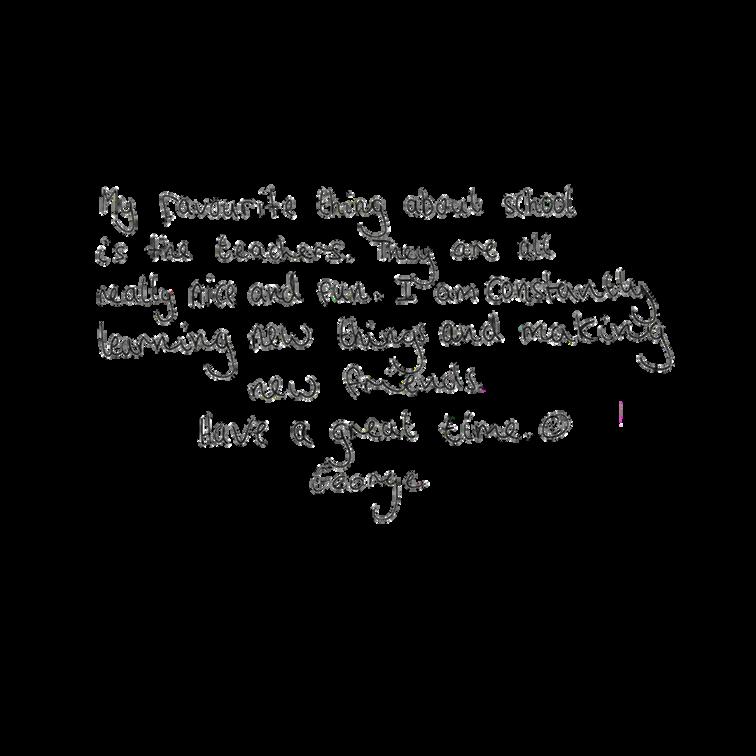 My favourite thing about school
is the teachers. They are all
really nice and fun. I am constantly
learning new things and making
new friends.
Have a great time. ☺
George